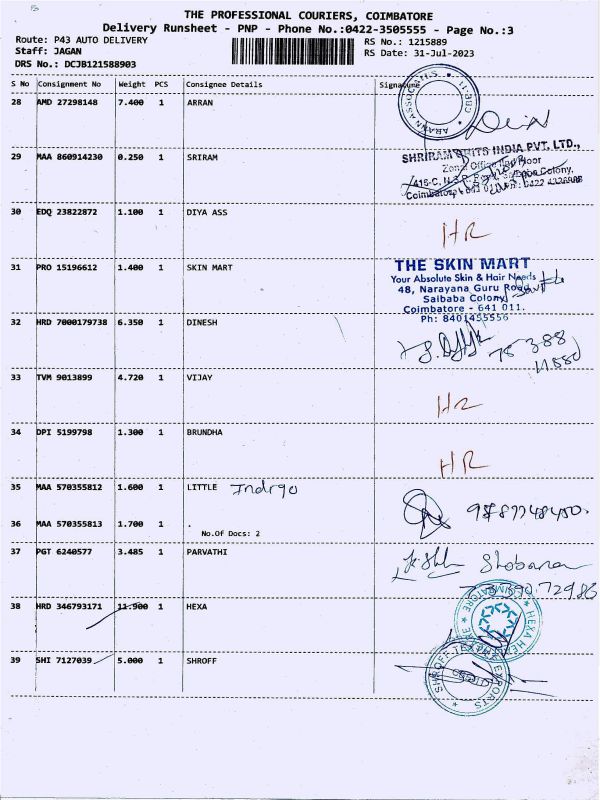 THE PROFESSIONAL COURIERS, COIMBATORE
Delivery Runsheet - PNP - Phone No.:0422-3505555 - Page No.:3
Route: P43 AUTO DELIVERY
RS No.: 1215889
Staff: JAGAN
RS Date: 31-Jul-2023
DRS No.: DCJB121588903
S No Consignment No Weight PCS Consignee Details Signature
28 AMD 27298148 7.400 1 ARRAN
29 MAA 860914230 0.250 1 SRIRAM
SHRIRAM INDIA PVT. LTD.,
Zonal Office Floor
Colony,
30 EDQ 23822872 1.100 1 DIYA ASS
HR
31 PRO 15196612 1.400 1 SKIN MART
THE SKIN MART
Your Absolute Skin & Hair Needs
48, Narayana Guru Road
Saibaba Colony
Coimbatore - 641 011.
Ph: 8401455556
32 HRD 7000179738 6.350 1 DINESH
33 TVM 9013899 4.720 1 VIJAY
HR
34 DPI 5199798 1.300 1 BRUNDHA
HR
35 MAA 570355812 1.600 1 LITTLE Indigo
36 MAA 570355813 1.700 1 .
No.Of Docs: 2
37 PGT 6240577 3.485 1 PARVATHI
Shobana
38 HRD 346793171 11.900 1 HEXA
39 SHI 7127039 5.000 1 SHROFF